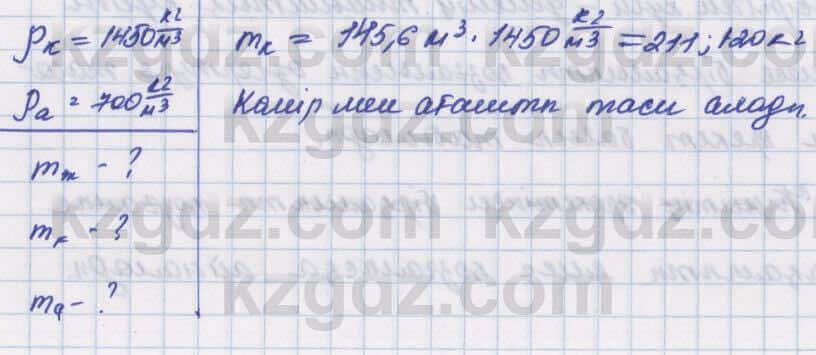 ρк = 1450 кг/м³
ρа = 700 кг/м³
mт - ?
mк - ?
mа - ?
mк = 145,6 м³ · 1450 кг/м³ = 211;120 кг
Көмір мен ағашты таси алады.
kzgdz.com kzgdz.com
kzgdz.com kzgdz.com
kzgdz.com kzgdz.com